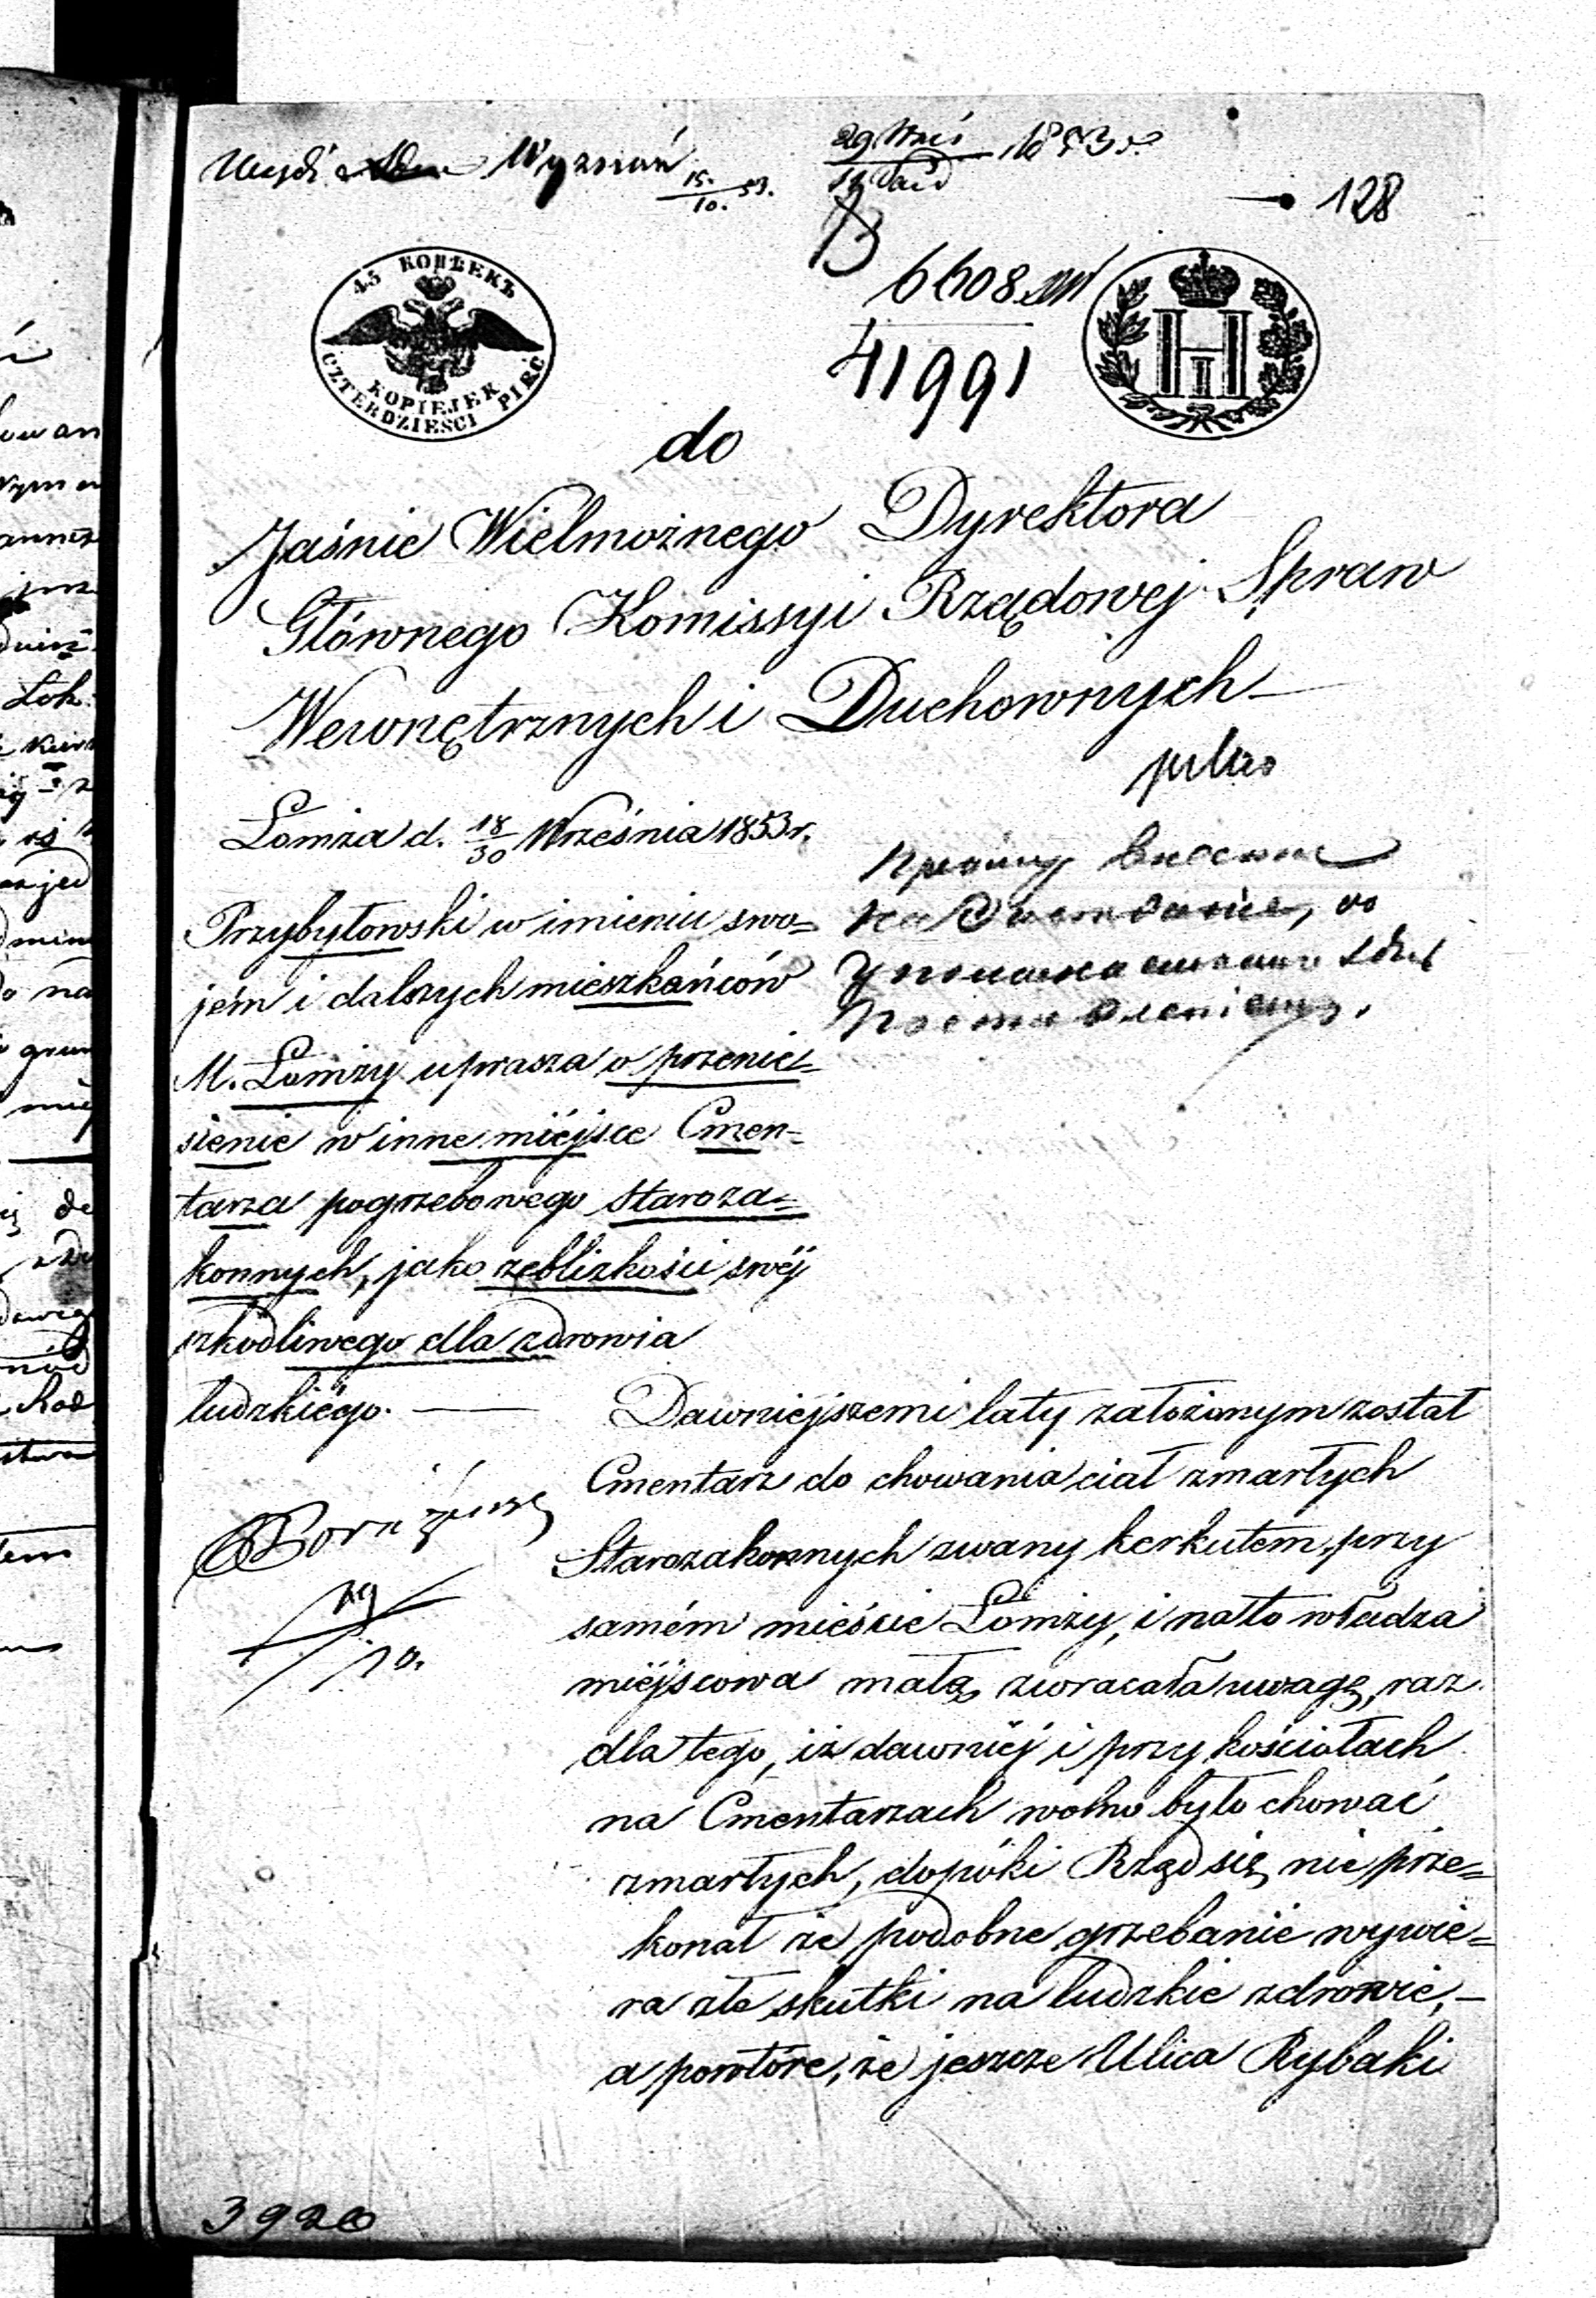 Wyznań
15/10. 53.
1853 r.
128
45 КОПѢЕКЪ
KOPIEJEK
CZTERDZIEŚCI PIĘĆ
6608
41991
do
Jaśnie Wielmożnego Dyrektora
Głównego Komissyi Rządowej Spraw
Wewnętrznych i Duchownych
pilno
Łomża d. 18/30 Września 1853 r.
Przybyłowski w imieniu swo=
jém i dalszych mieszkańców
M. Łomży uprasza o przenie=
sienie w inne miéjsce Cmen=
tarza pogrzebowego staroza=
konnych, jako zeblizkości swéj
szkodliwego dla zdrowia
ludzkiégo. —
Dawniejszemi laty założonym został
Cmentarz do chowania ciał zmarłych
Starozakonnych zwany kerkutem, przy
samém mieście Łomży, i nato władza
miéjscowa małą zwracała uwagę, raz
dla tego, iż dawniéj i przy kościołach
na Cmentarzach wolno było chować
zmarłych, dopóki Rząd się nie prze=
konał że podobne grzebanie wywie=
ra złe skutki na ludzkie zdrowie, —
a powtóre, że jeszcze Ulica Rybaki
3920